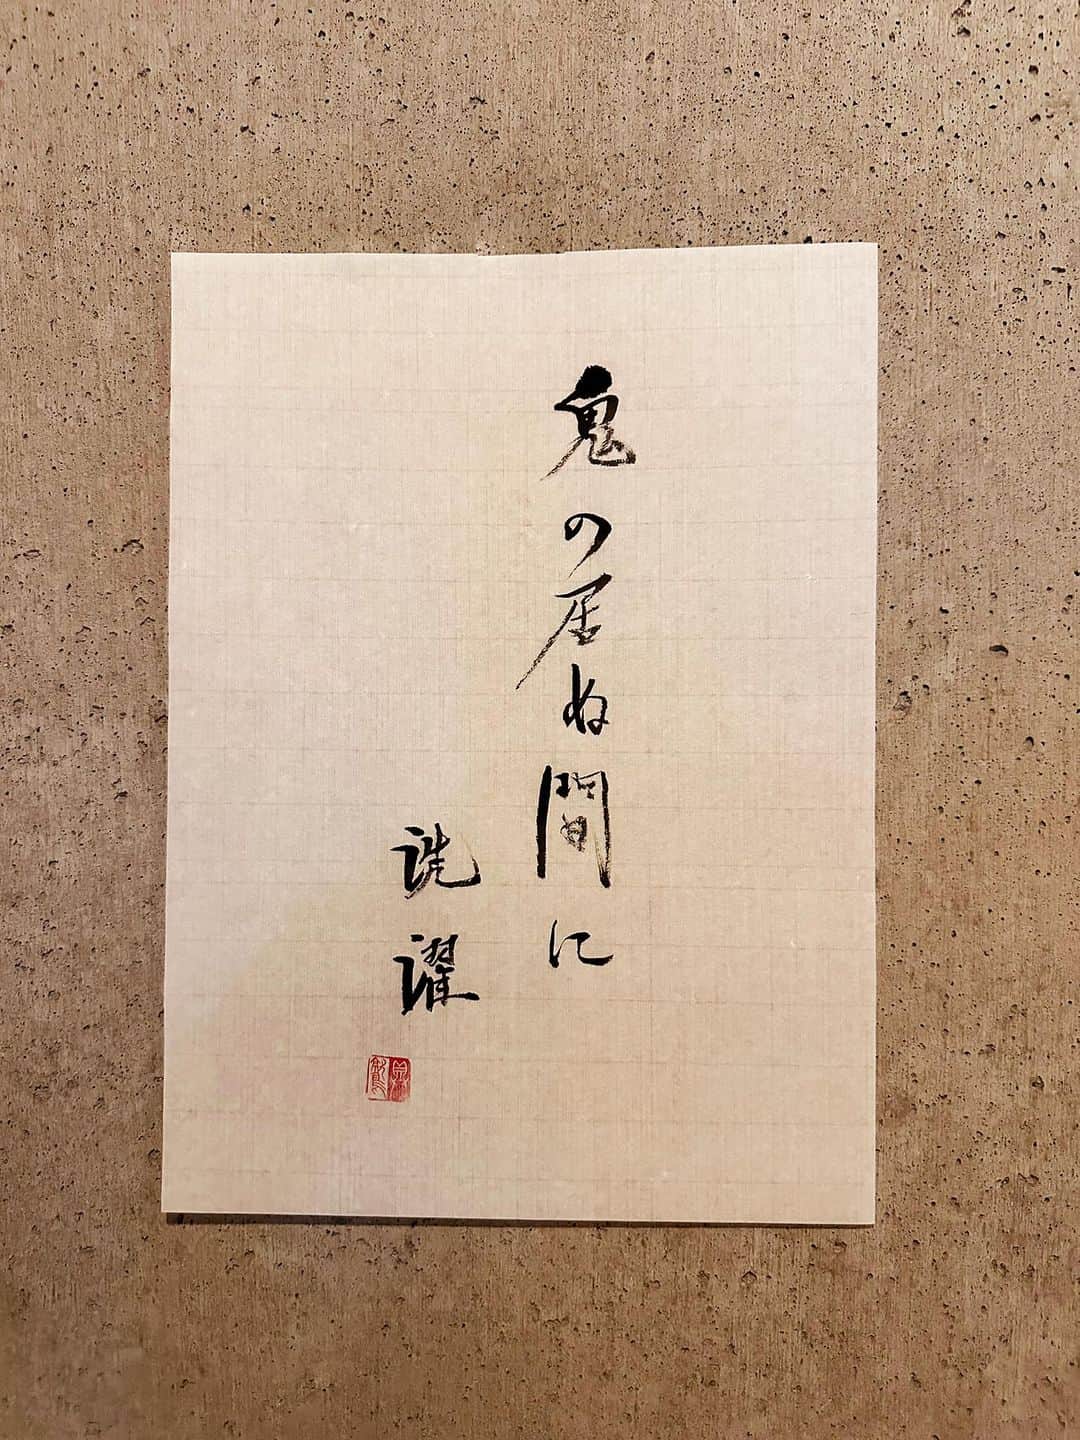 鬼の居ぬ間に
洗濯